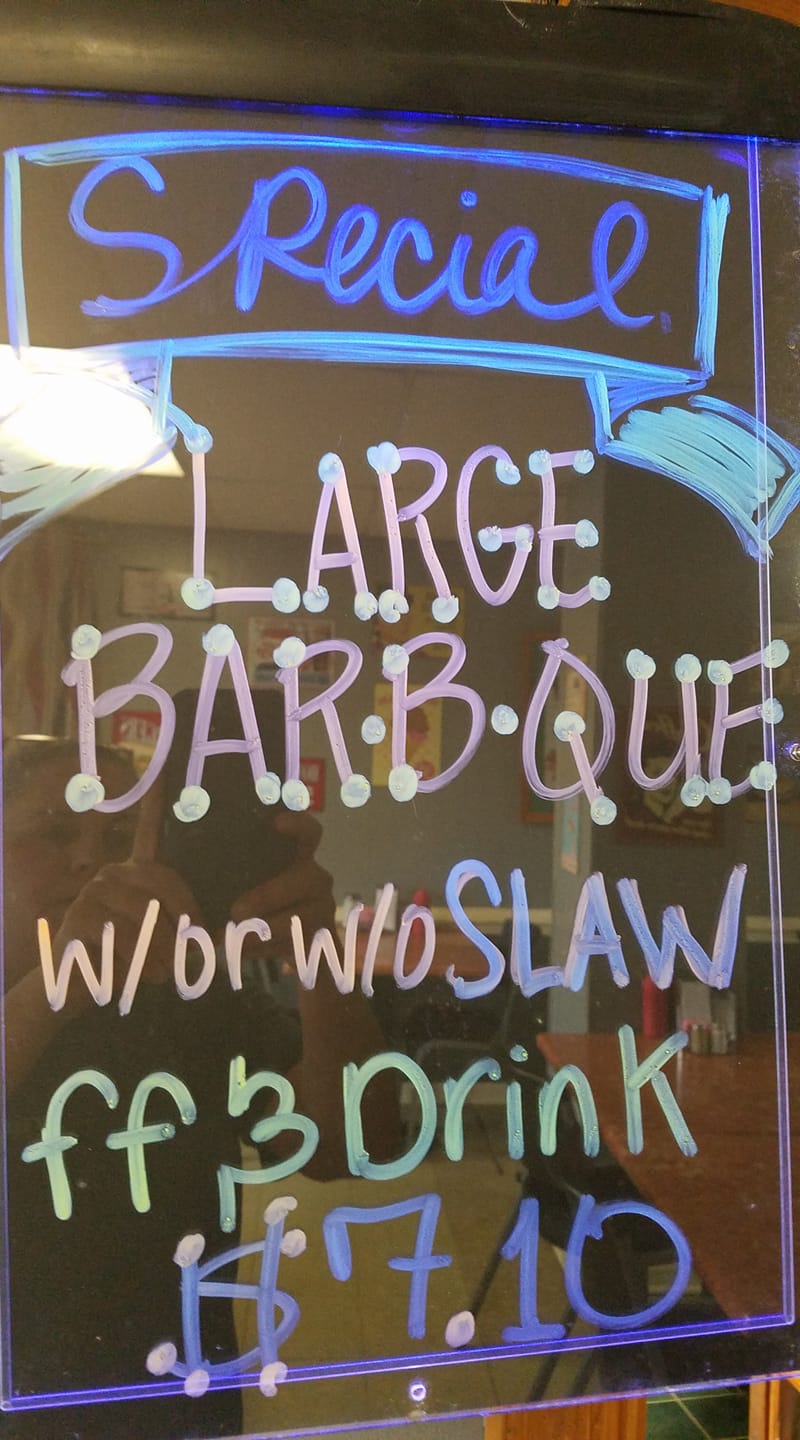 Special.
LARGE
BAR·B·QUE
w/or w/o SLAW
ff & Drink
$7.10